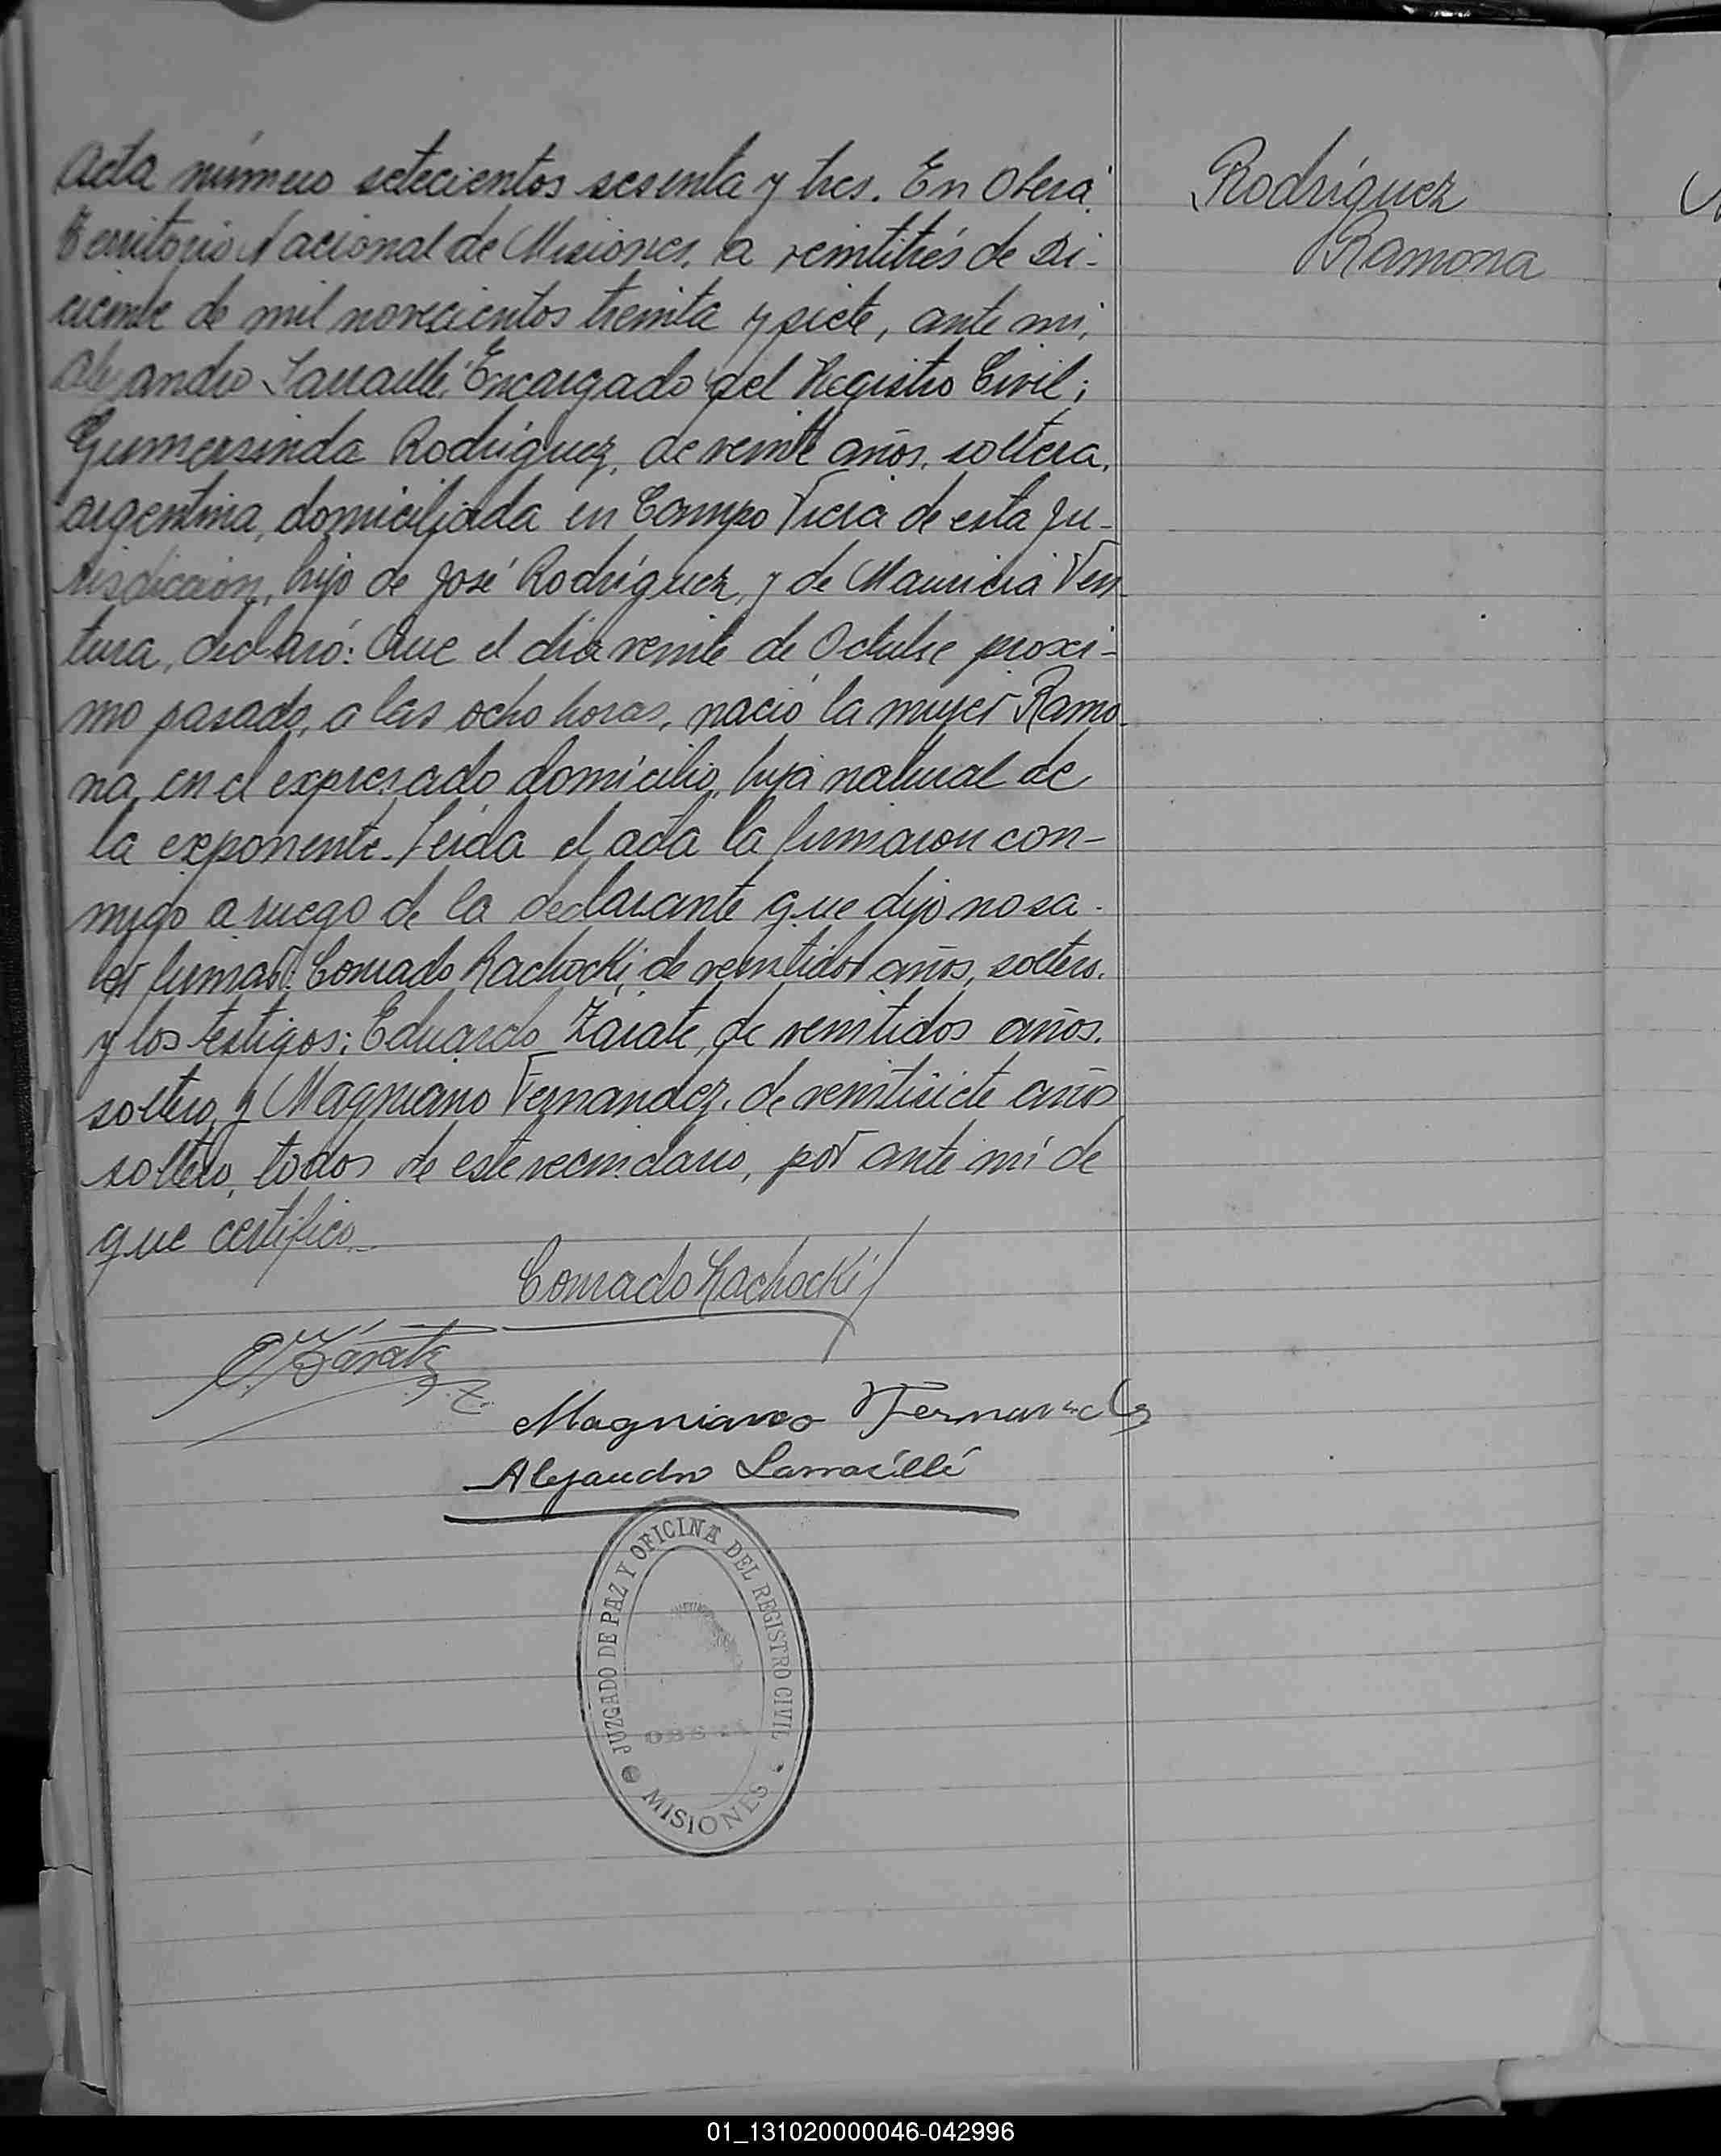 Acta número setecientos sesenta y tres. En Oberá
Territorio Nacional de Misiones, a veintitrés de Di-
ciembre de mil novecientos treinta y siete, ante mí,
Alejandro Larraille, Encargado del Registro Civil;
Gumersinda Rodríguez, de veinte años, soltera,
argentina, domiciliada en Campo Viera de esta ju-
risdicción, hijo de José Rodríguez, y de Mauricia Ven-
tura, declaró: Que el día veinte de Octubre proxi-
mo pasado, a las ocho horas, nació la mujer Ramo-
na, en el expresado domicilio, hija natural de
la exponente. Leida el acta la firmaron con-
migo a ruego de la declarante que dijo no sa-
ber firmar: Conrado Rachocki, de veintidos años, soltero,
y los testigos: Eduardo Zárate, de veintidos años,
soltero, y Magniano Fernandez, de veintisiete años
soltero, todos de este vecindario, por ante mí de
que certifico.
Rodríguez
Ramona
Conrado Rachocki
E. Zárate
Magniano Fernandez
Alejandro Larraillé
JUZGADO DE PAZ Y OFICINA DEL REGISTRO CIVIL
OBERA
MISIONES
01_131020000046-042996